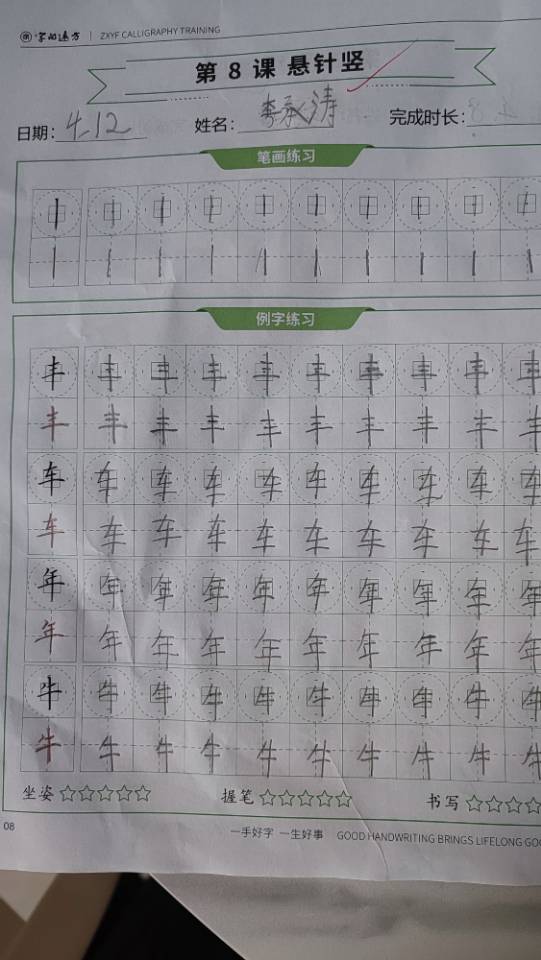 字向远方 ZXYF CALLIGRAPHY TRAINING
第 8 课 悬针竖
日期: 4.12 姓名: 李承涛 完成时长:
笔画练习
例字练习
丰 丰 丰 丰 丰 丰 丰 丰 丰 丰
丰 丰 丰 丰 丰 丰 丰 丰 丰 丰
车 车 车 车 车 车 车 车 车 车
车 车 车 车 车 车 车 车 车 车
年 年 年 年 年 年 年 年 年 年
年 年 年 年 年 年 年 年 年 年
牛 牛 牛 牛 牛 牛 牛 牛 牛 牛
牛 牛 牛 牛 牛 牛 牛 牛 牛 牛
坐姿 ☆☆☆☆☆ 握笔 ☆☆☆☆☆ 书写 ☆☆☆☆
08
一手好字 一生好事 GOOD HANDWRITING BRINGS LIFELONG GO